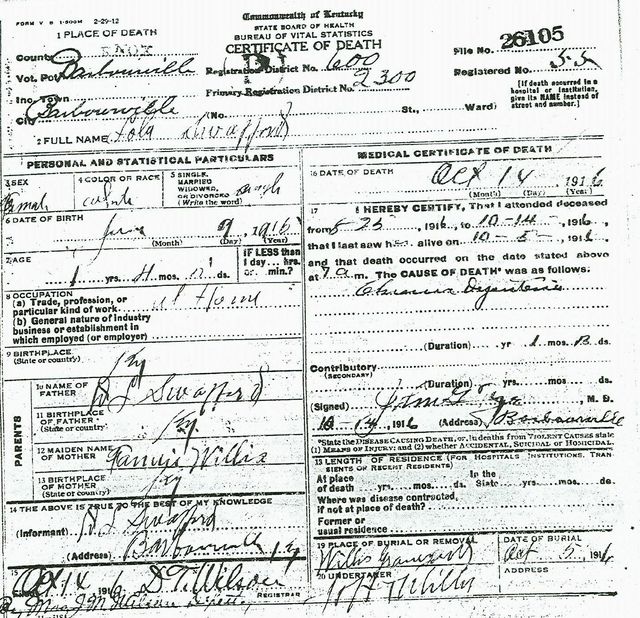 FORM V S 1-500M 2-29-12
Commonwealth of Kentucky
STATE BOARD OF HEALTH
BUREAU OF VITAL STATISTICS
CERTIFICATE OF DEATH
1 PLACE OF DEATH
County KNOX
File No. 26105
Vot. Pct Barbourville
Registration District No. 600
Registered No. 55
Inc. Town
Primary Registration District No. 2300
City Barbourville
(No. St., Ward)
[If death occurred in a hospital or institution, give its NAME instead of street and number.]
2 FULL NAME Lola Swafford
PERSONAL AND STATISTICAL PARTICULARS
3 SEX Female
4 COLOR OR RACE white
5 SINGLE, MARRIED WIDOWED, OR DIVORCED (Write the word) Single
6 DATE OF BIRTH 9, 1915
(Month) (Day) (Year)
7 AGE
1 yrs. 4 mos. ds.
IF LESS than 1 day... hrs. or... min.?
8 OCCUPATION
(a) Trade, profession, or particular kind of work at Home
(b) General nature of industry business or establishment in which employed (or employer)
9 BIRTHPLACE
(State or country) Ky
PARENTS
10 NAME OF FATHER Swafford
11 BIRTHPLACE OF FATHER
(State or country) Ky
12 MAIDEN NAME OF MOTHER Fannie Willis
13 BIRTHPLACE OF MOTHER
(State or country) Ky
14 THE ABOVE IS TRUE TO THE BEST OF MY KNOWLEDGE
(Informant) Swafford
(Address) Barbourville Ky
15
Filed Oct 14 1916 D. T. Wilson
REGISTRAR
By Mrs J M Wilson Deputy
MEDICAL CERTIFICATE OF DEATH
16 DATE OF DEATH Oct 14, 1916
(Month) (Day) (Year)
17 I HEREBY CERTIFY, That I attended deceased
from 8-23, 1916, to 10-14-, 1916,
that I last saw h alive on 10-5-, 1916,
and that death occurred on the date stated above
at 7 a m. The CAUSE OF DEATH* was as follows:
(Duration) yr mos. ds.
Contributory
(SECONDARY)
(Duration) yrs. mos. ds.
(Signed) , M. D.
10-14, 1916 (Address) Barbourville
*State the DISEASE CAUSING DEATH, or, in deaths from VIOLENT CAUSES state
(1) MEANS OF INJURY; and (2) whether ACCIDENTAL, SUICIDAL or HOMICIDAL.
18 LENGTH OF RESIDENCE (FOR HOSPITALS, INSTITUTIONS, TRANSIENTS OR RECENT RESIDENTS)
At place of death yrs. mos. ds. In the State yrs. mos. ds.
Where was disease contracted, if not at place of death?
Former or usual residence
19 PLACE OF BURIAL OR REMOVAL
Willis Graveyard
DATE OF BURIAL
Oct 5, 1916
20 UNDERTAKER
ADDRESS